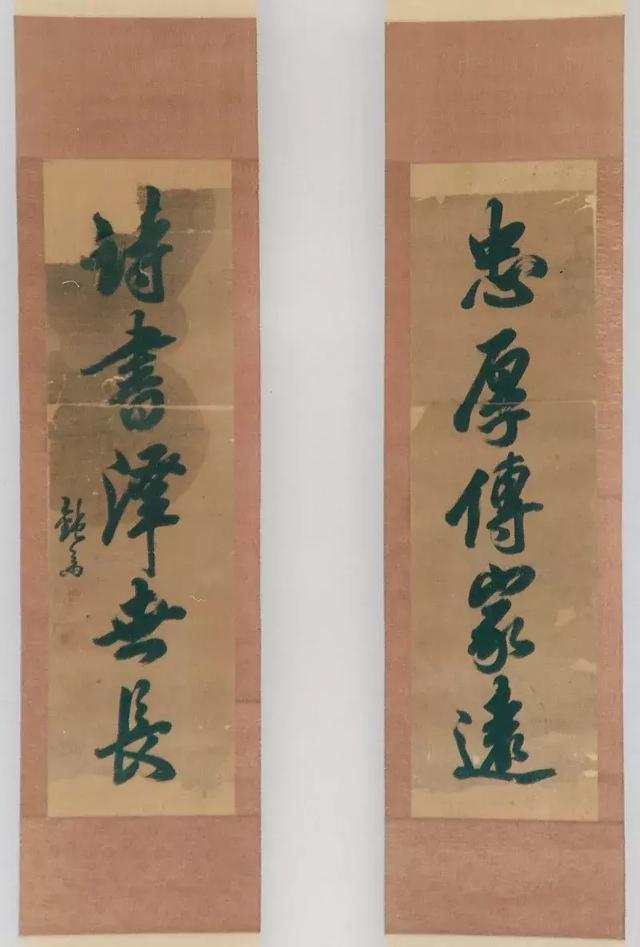 忠厚傳家遠
詩書澤世長